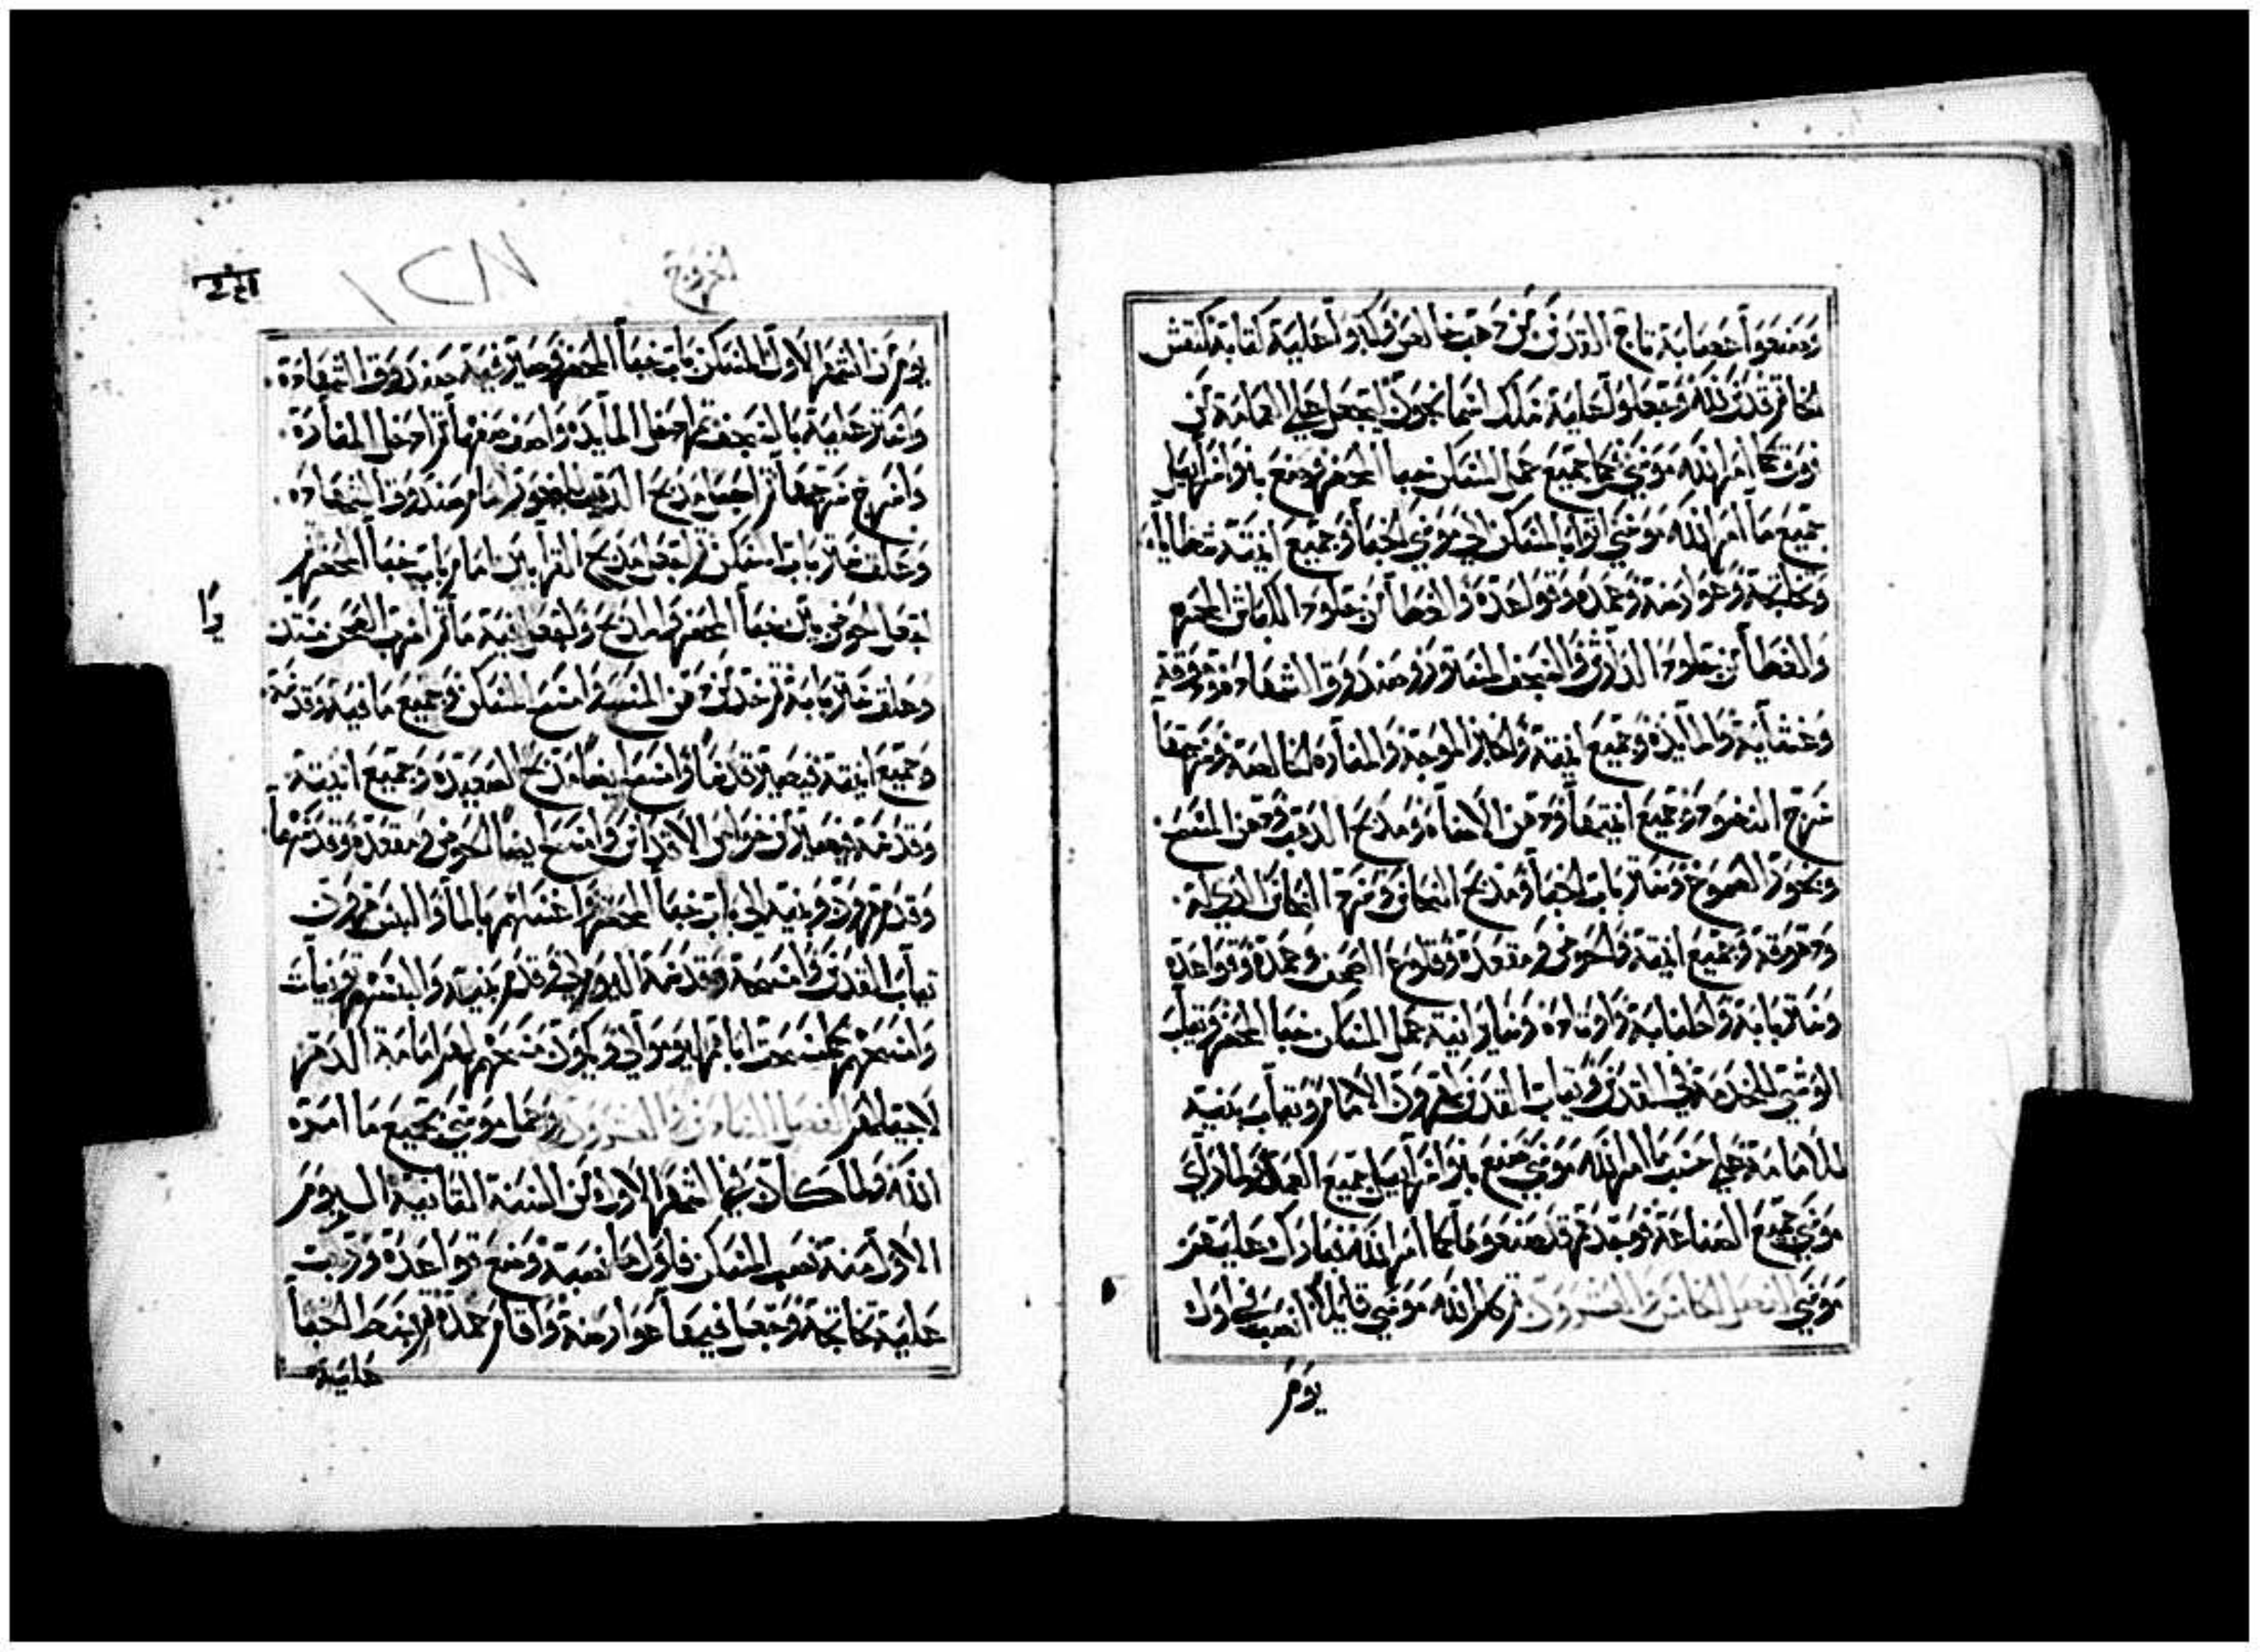 وصنعوا عصابة تاج القدس من ذهب خالص وكتبوا عليه كتابة كنقش
خاتم قدس لله وجعلوا عليه سلك اسمانجون ليجعل علي العمامة من
فوق كما امر الله موسي جميع عمل المسكن خبا المحضر وصنع بنو اسراييل
جميع ما امر الله موسي اتوا بالمسكن الي موسي الخبا وجميع انيته
وتخاتجه وعوارضه وعمده وقواعده والغطا من جلود الكباش المحمره
والغطا من جلود الدارش والسجف المستور وصندوق الشهاده ودهوقه
وغشايه والمايده وجميع انيته والخبز الموجه والمناره الخالصه وسرجها
سرج النضود وجميع انيتها ودهن الاضاه ومذبح الذهب ودهن المسح
وبخور الصموغ وستر باب الخبا ومذبح النحاس وسرد النحاس الذي له
ودهوقه وجميع انيته والحوض ومقعده وقلوع الصحن وعمده وقواعده
وستر بابه واطنابه واوتاده وساير انية عمل المسكن خبا المحضر وثياب
الوشي للخدمة في القدس وثياب القدس لهرون الامام وثياب بنيه
للامامة علي حسب ما امر الله موسي صنع بنو اسراييل جميع العمل ولما راي
موسي جميع الصناعة فوجدهم قد صنعوها كما امر الله فبارك عليهم
موسي الفصل الخامس والعشرون ثم كلم الله موسي قايلا انصب في اول
يوم
الخروج
يوم من الشهر الاول المسكن باب خبا المحضر وصير فيه صندوق الشهاده
واستر عليه بالسجف ثم ادخل المايده وانضد نضدها ثم ادخل المناره
واسرج سرجها ثم اجعل مذبح الذهب للبخور امام صندوق الشهاده
وعلق ستر باب المسكن ثم اجعل مذبح القرابين امام باب خبا المحضر
اجعل الحوض بين خبا المحضر والمذبح واجعل فيه ما ثم انصب الصحن مستدير
وعلق ستر بابه ثم خذ من دهن المسح وامسح المسكن وجميع ما فيه وقدسه
وجميع انيته فيصير قدسا وامسح ايضا مذبح الصعيده وجميع انيته
وقدسه فيصير من خواص الاقداس وامسح ايضا الحوض ومقعده وقدسها
وقدم هرون وبنيه الي باب خبا المحضر واغسلهم بالما والبس هرون
ثياب القدس وامسحه وقدسه اليوم لي وقدم بنيه والبسهم تونيات
وامسحهم كما مسحت اباهم ليوموا لي ويكون مسحهم لهم امامة الدهر
لاجيالهم الفصل السادس والعشرون وعمل موسي بجميع ما امره
الله ولما كان في الشهر الاول من السنة الثانية اليوم
الاول منه نصب المسكن فاول ما نصبه وضع قواعده ورتب
عليه تخاتجه وجعل فيها عوارضه واقام عمده ثم بسط الخبا
عليه